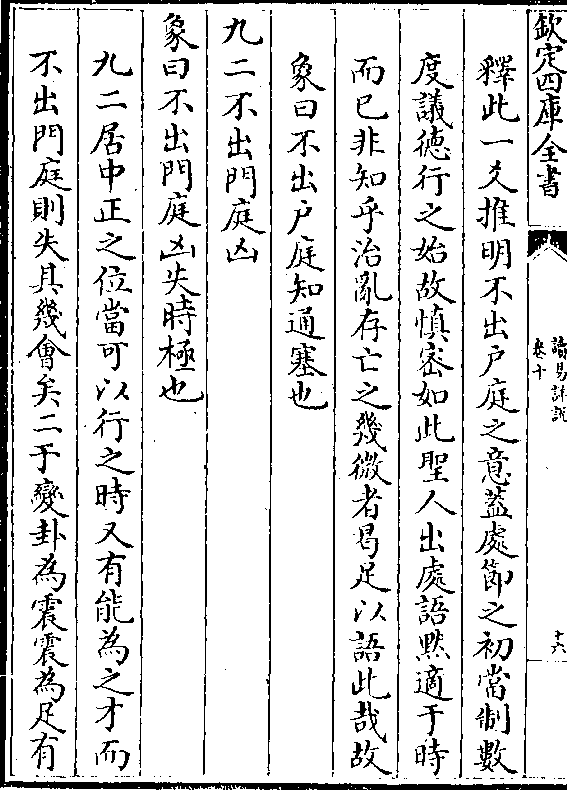 欽定四庫全書
讀易詳說
卷十
十六
釋此一爻推明不出户庭之意蓋處節之初當制數
度議徳行之始故慎宻如此聖人出處語黙適于時
而已非知乎治亂存亡之幾微者曷足以語此哉故
象曰不出户庭知通塞也
九二不出門庭凶
象曰不出門庭凶失時極也
九二居中正之位當可以行之時又有能為之才而
不出門庭則失其幾會矣二于變卦為震震為足有